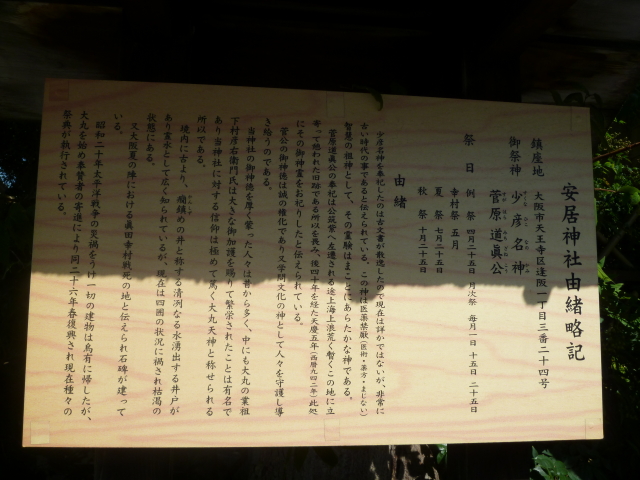 安居神社由緒略記
鎮座地 大阪市天王寺区逢阪一丁目三番二十四号
御祭神 少彦名神
菅原道真公
祭日 例祭 四月二十五日 月次祭 毎月一日 十五日 二十五日
幸村祭 五月
夏祭 七月二十五日
秋祭 十月二十五日
由緒
少彦名神を奉祀したのは古文書が散逸したので現在は詳かではないが、非常に
古い時代の事であると伝えられている。この神は医薬禁厭(医術・薬方・まじない)
智慧の祖神として、その霊験はまことにあらたかな神である。
菅原道真公の奉祀は公筑紫へ左遷される途上海上浪荒く暫くこの地に立
寄って憩われた旧跡である所以を畏み、後四十年を経た天慶五年(西暦九四二年)此処
にその御神霊をお祀りしたと伝えられている。
菅公の御神徳は誠の権化であり又学問文化の神として人々を守護し導
き給うのである。
当神社の御神徳を厚く蒙った人々は昔から多く、中にも大丸の業祖
下村彦右衛門氏は大きな御加護を賜りて繁栄されたことは有名で
あり当神社に対する信仰は極めて篤く大丸天神と称せられる
所以である。
境内に古より、癇鎮めの井と称する清冽なる水湧出する井戸が
あり霊水として広く知られているが、現在は四囲の状況に禍され枯渇の
状態にある。
又大阪夏の陣における眞田幸村戦死の地と伝えられ石碑が建って
いる。
昭和二十年太平洋戦争の災禍をうけ一切の建物は烏有に帰したが、
大丸を始め奉賛者の寄進により同二十六年春復興され現在種々の
祭典が執行されている。